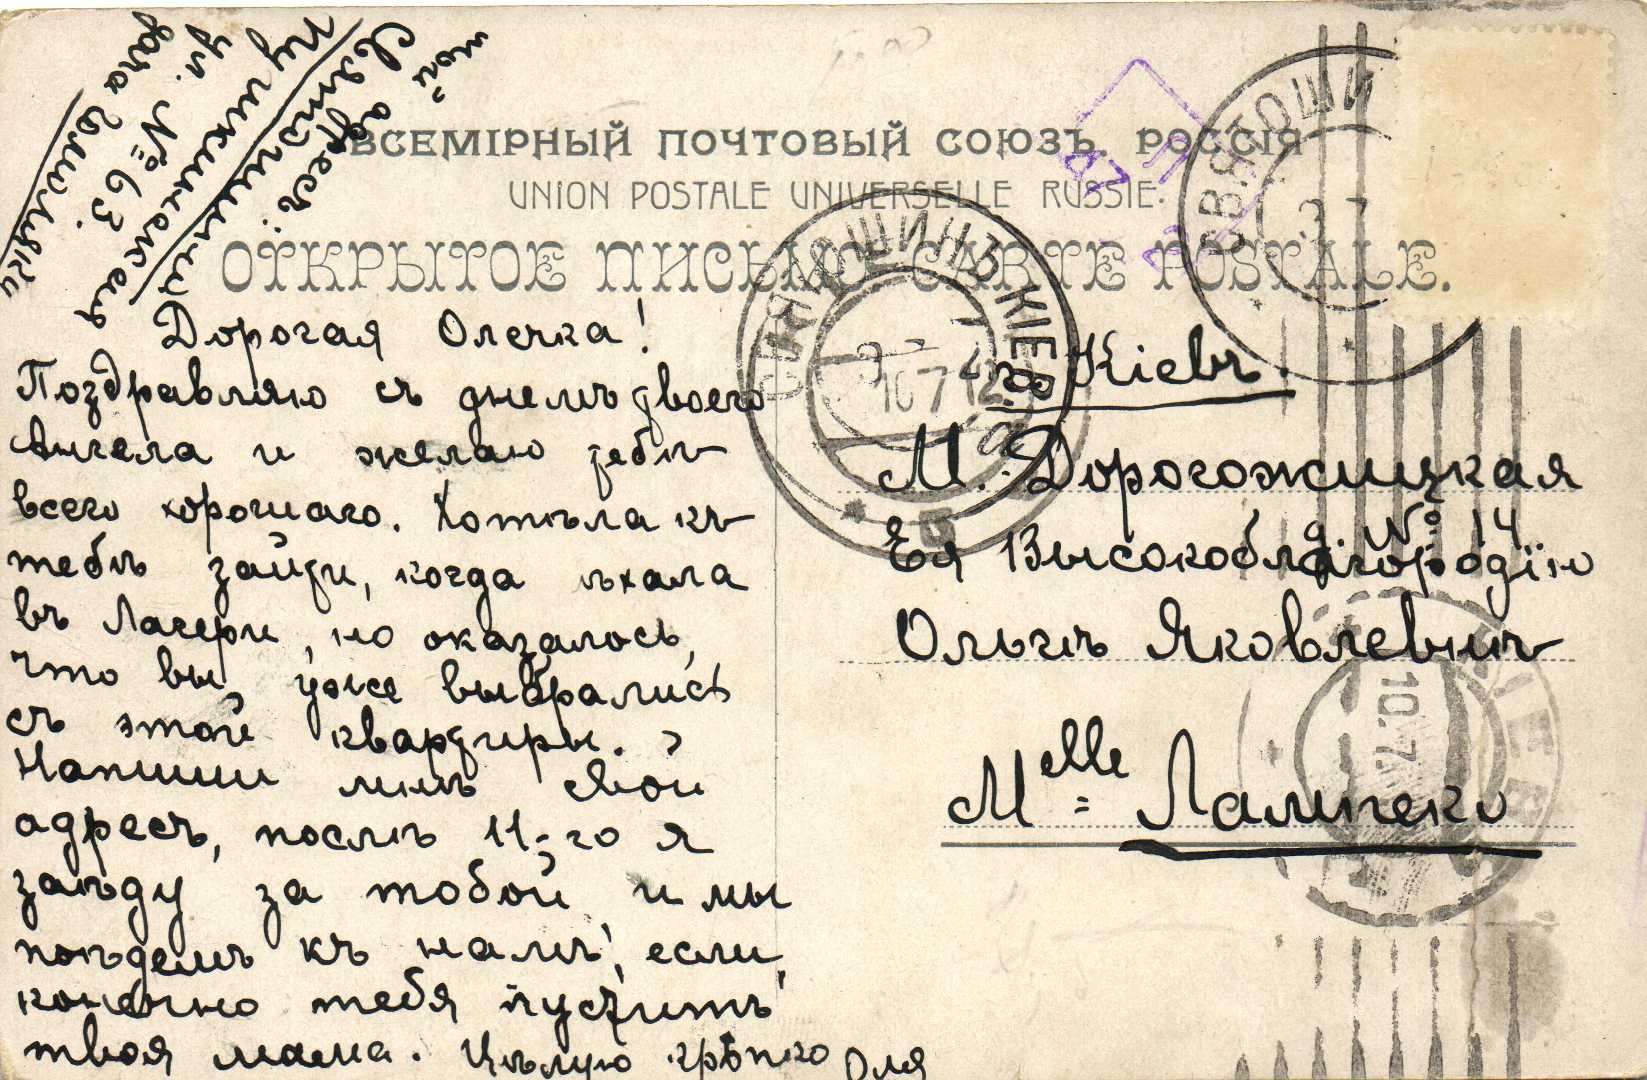 мой адресъ:
Святошинъ
Пушкинская
ул. № 63
дача
ВСЕМІРНЫЙ ПОЧТОВЫЙ СОЮЗЪ. РОССІЯ
UNION POSTALE UNIVERSELLE RUSSIE.
ОТКРЫТОЕ ПИСЬМО CARTE POSTALE.
СВЯТОШИ
СВЯТОШИНЪ КІЕВ
10 7 12
Дорогая Олечка!
Поздравляю съ днемъ твоего
Ангела и желаю тебѣ
всего хорошаго. Хотѣла къ
тебѣ зайти, когда ѣхала
въ Лагери, но оказалось,
что вы уже выбрались
съ этой квартиры.
Напиши мнѣ свой
адресъ, послѣ 11-го я
заѣду за тобой и мы
поѣдемъ къ намъ, если,
конечно тебя пуститъ
твоя мама. Цѣлую крѣпко Оля
Кіевъ.
М. Дорогожицкая
д. № 14
Ея Высокоблагородію
Ольгѣ Яковлевнѣ
Melle = Лампеко
КІЕВ
10.7.